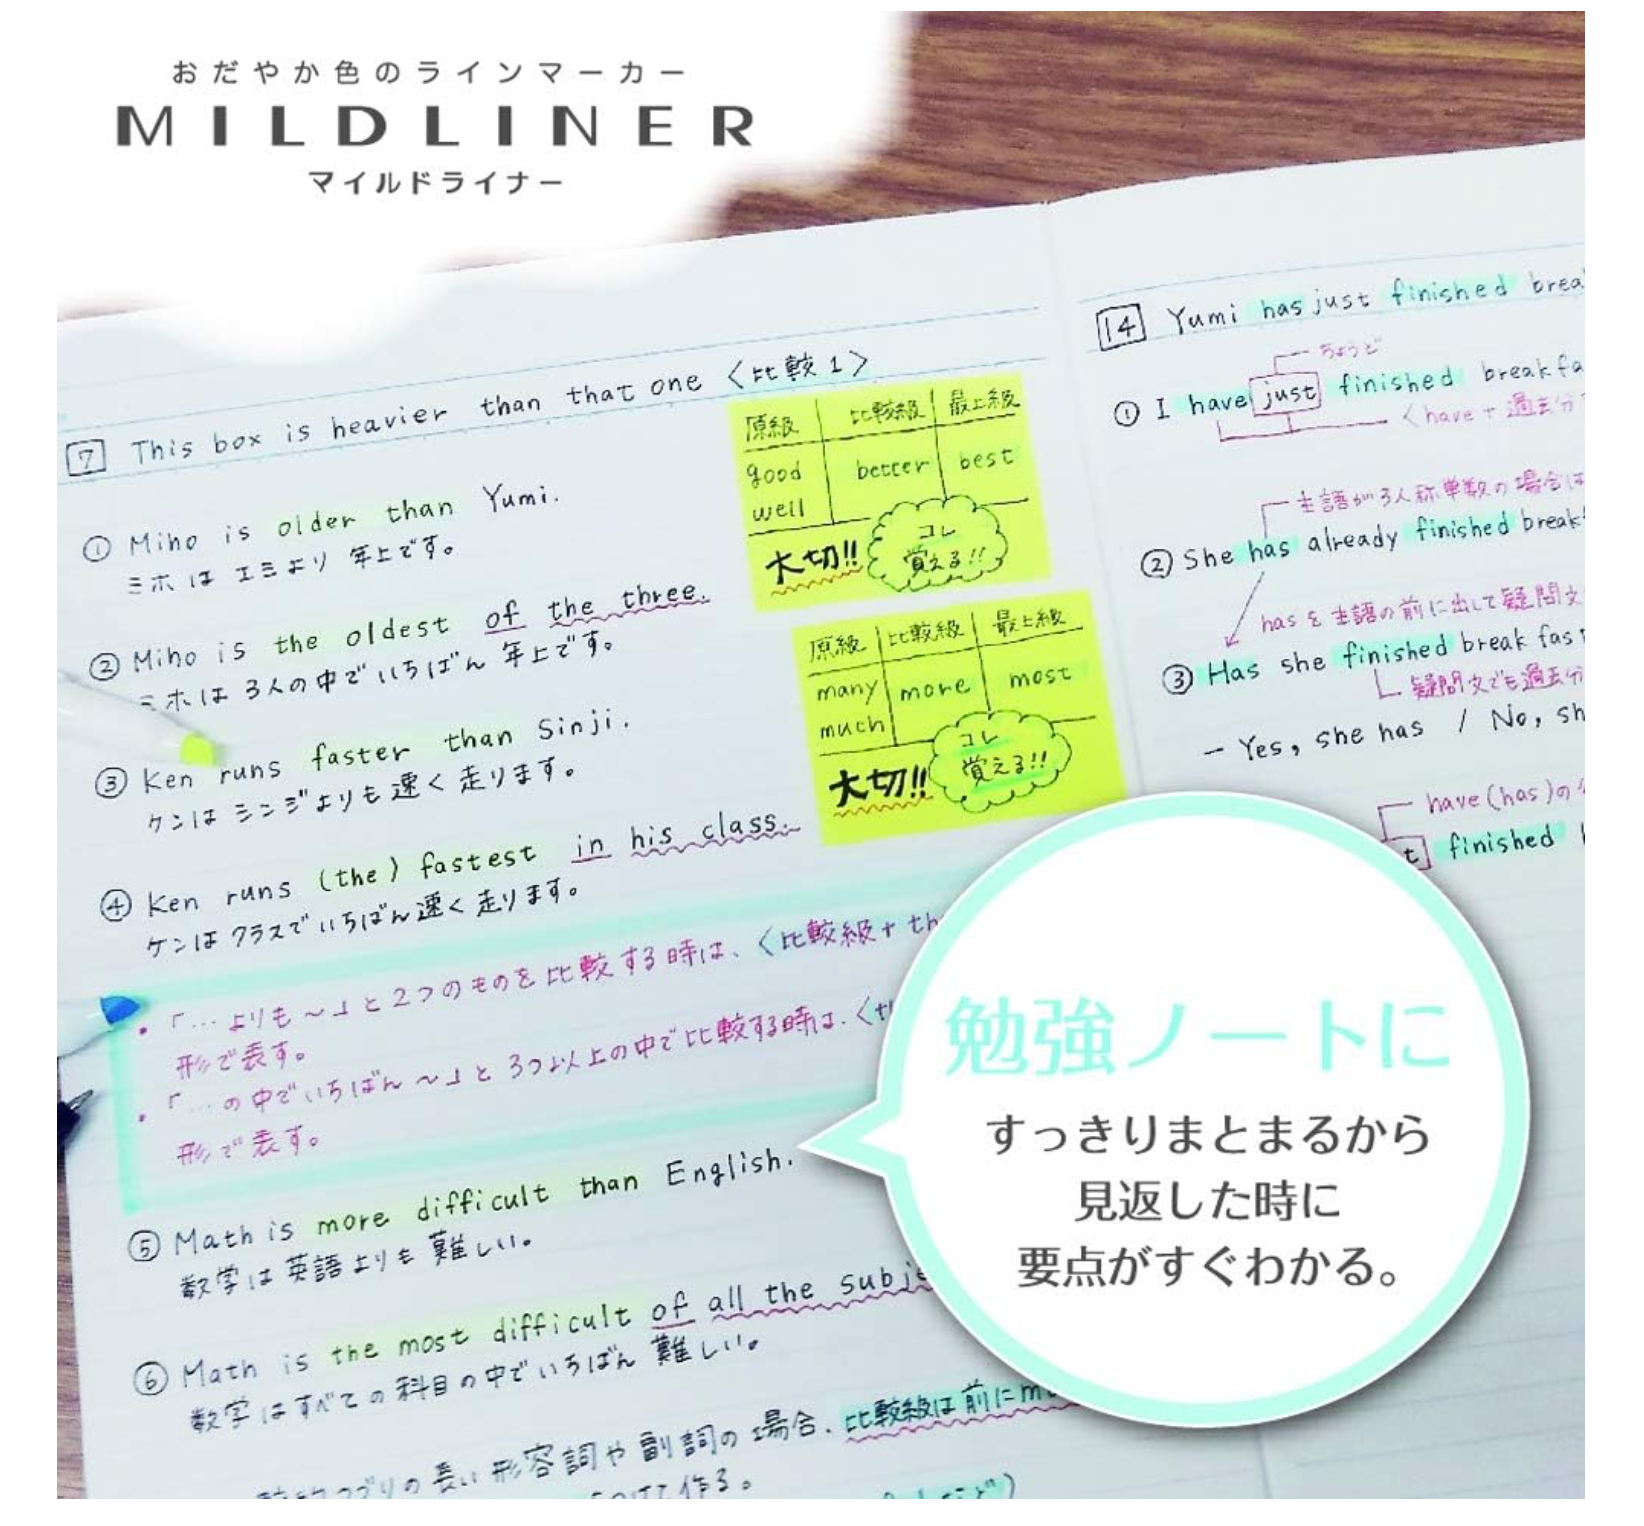 おだやか色のラインマーカー
MILDLINER
マイルドライナー
7 This box is heavier than that one〈比較1〉
① Miho is older than Yumi.
ミホは エミより 年上です。
② Miho is the oldest of the three.
ミホは 3人の中でいちばん 年上です。
③ Ken runs faster than Sinji.
ケンは シンジよりも 速く 走ります。
④ Ken runs (the) fastest in his class.
ケンは クラスでいちばん 速く 走ります。
・「…よりも〜」と2つのものを比較する時は、〈比較級+th
形で表す。
・「…の中でいちばん〜」と3つ以上の中で比較する時は、〈th
形で表す。
⑤ Math is more difficult than English.
数学は 英語よりも 難しい。
⑥ Math is the most difficult of all the subje
数学は すべての科目の中でいちばん 難しい。
つづりの長い形容詞や副詞の場合、比較級は前にmo
つけて作る。
原級 比較級 最上級
good better best
well
大切!! コレ
覚える!!
原級 比較級 最上級
many more most
much
大切!! コレ
覚える!!
14 Yumi has just finished brea
ちょうど
① I have just finished breakfa
〈have+過去分
主語が3人称単数の場合は
② She has already finished break
hasを主語の前に出して疑問文
③ Has she finished break fas
疑問文でも過去分
— Yes, she has / No, sh
have(has)の
t finished
勉強ノートに
すっきりまとまるから
見返した時に
要点がすぐわかる。